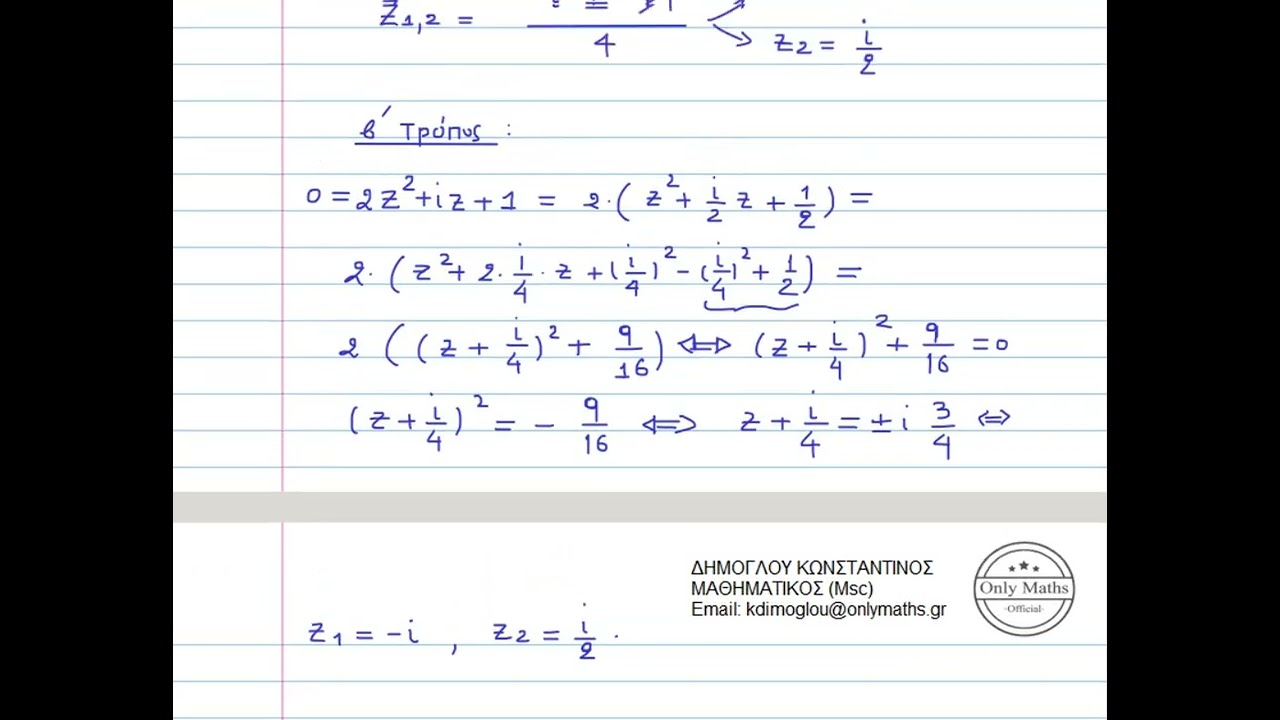 Z1,2 = 4
Z2 = i/2
β' Τρόπος :
0 = 2z² + iz + 1 = 2·(z² + i/2 z + 1/2) =
2·(z² + 2·i/4·z + (i/4)² - (i/4)² + 1/2) =
2 ((z + i/4)² + 9/16) ⇔ (z + i/4)² + 9/16 = 0
(z + i/4)² = - 9/16 ⇔ z + i/4 = ± i 3/4 ⇔
ΔΗΜΟΓΛΟΥ ΚΩΝΣΤΑΝΤΙΝΟΣ
ΜΑΘΗΜΑΤΙΚΟΣ (Msc)
Email: kdimoglou@onlymaths.gr
Only Maths
-Official-
Z1 = -i , Z2 = i/2 .